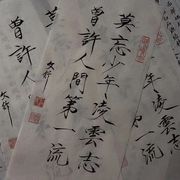 莫忘少年凌雲志
曾許人間第一流
年凌雲志
一流
曾許人